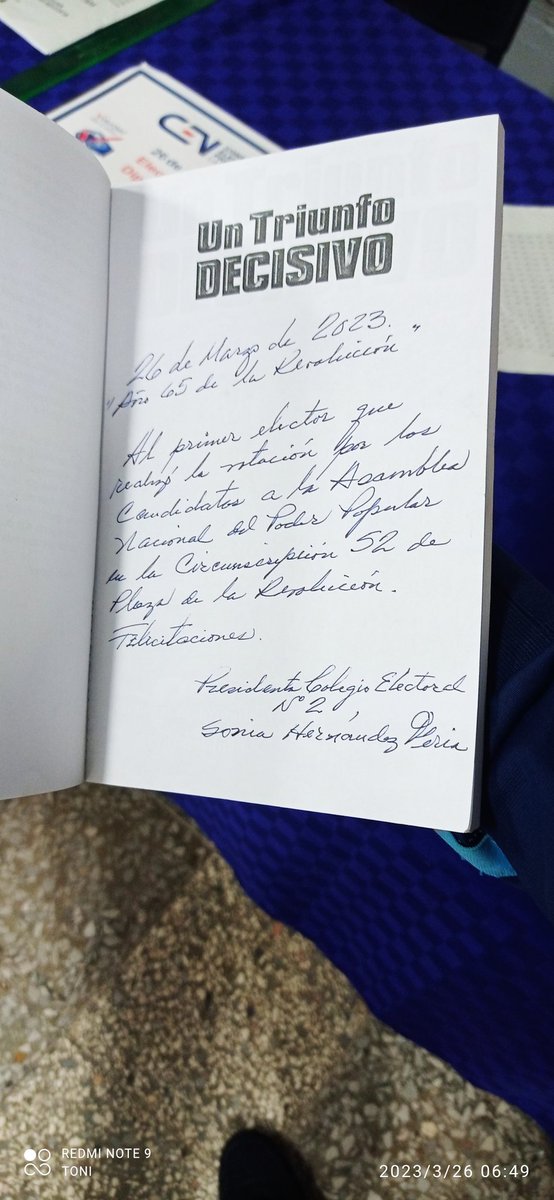 CEN
26 de
Elec
Dip
Un Triunfo
DECISIVO
26 de Marzo de 2023.
"Año 65 de la Revolución"
Al primer elector que
realizó la votación por los
Candidatos a la Asamblea
Nacional del Poder Popular
en la Circunscripción 52 de
Plaza de la Revolución.
Felicitaciones.
Presidenta Colegio Electoral
Nº 2,
Sonia Hernández
REDMI NOTE 9
TONI
2023/3/26 06:49